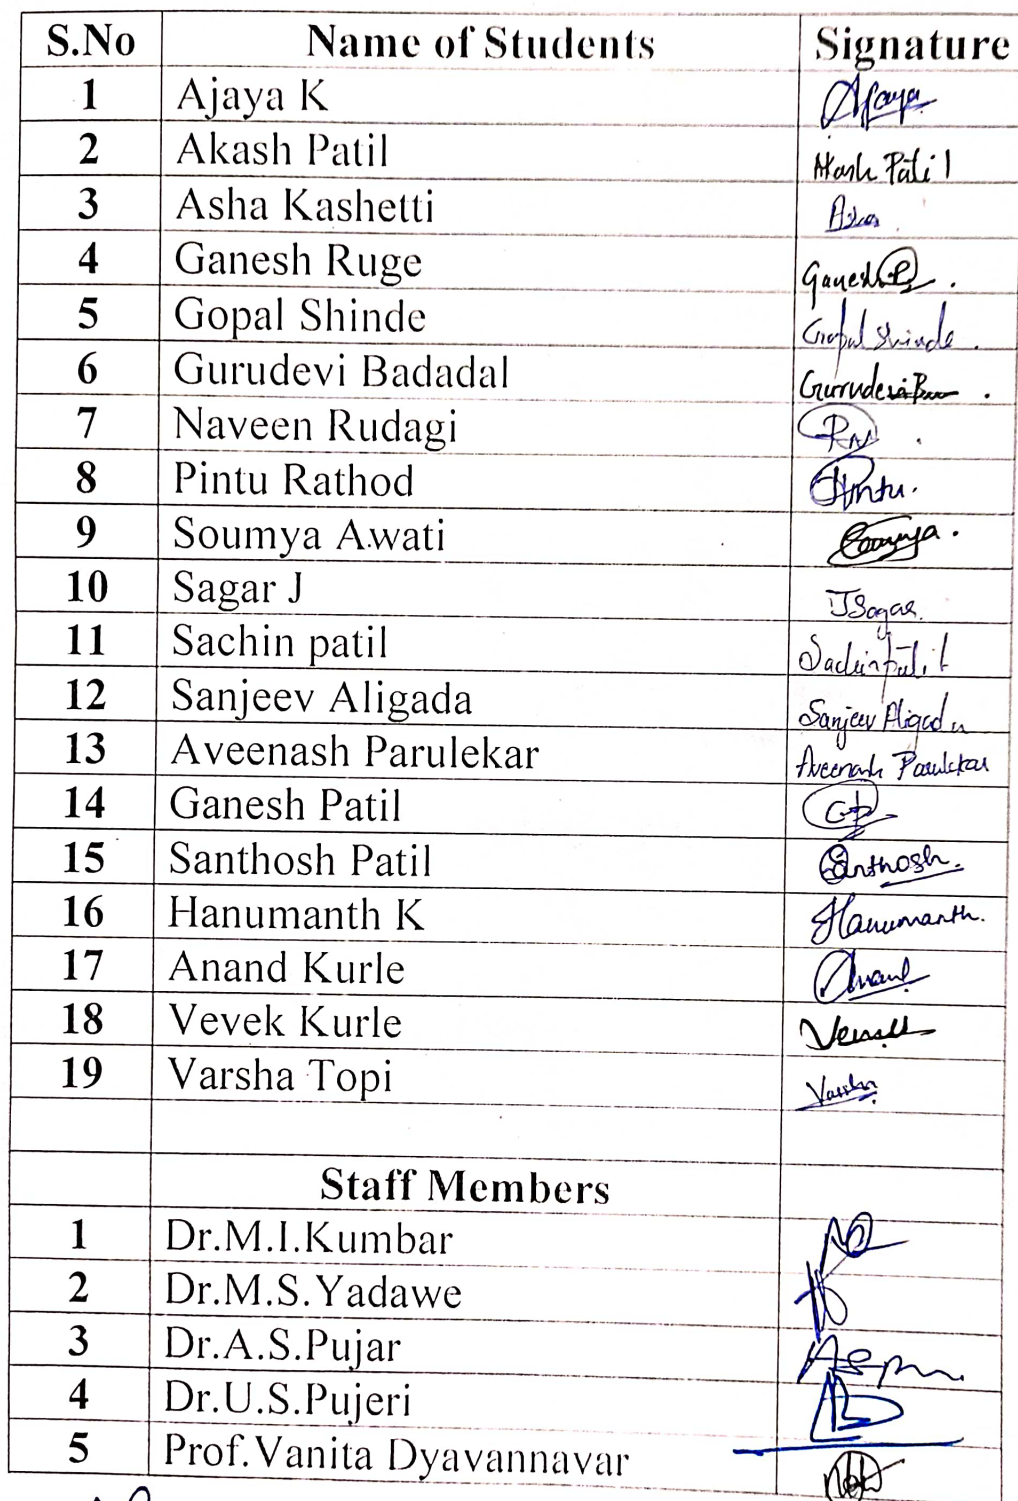 S.No Name of Students Signature
1 Ajaya K Ajaya
2 Akash Patil Akash Patil
3 Asha Kashetti Asha
4 Ganesh Ruge Ganesh R
5 Gopal Shinde Gopal Shinde
6 Gurudevi Badadal Gurudevi B
7 Naveen Rudagi
8 Pintu Rathod Pintu.
9 Soumya Awati Soumya.
10 Sagar J J Sagar
11 Sachin patil Sachin patil
12 Sanjeev Aligada Sanjeev Aligada
13 Aveenash Parulekar Aveenash Parulekar
14 Ganesh Patil GP
15 Santhosh Patil Santhosh.
16 Hanumanth K Hanumanth.
17 Anand Kurle Anand
18 Vevek Kurle
19 Varsha Topi Varsha
Staff Members
1 Dr.M.I.Kumbar
2 Dr.M.S.Yadawe
3 Dr.A.S.Pujar
4 Dr.U.S.Pujeri
5 Prof.Vanita Dyavannavar